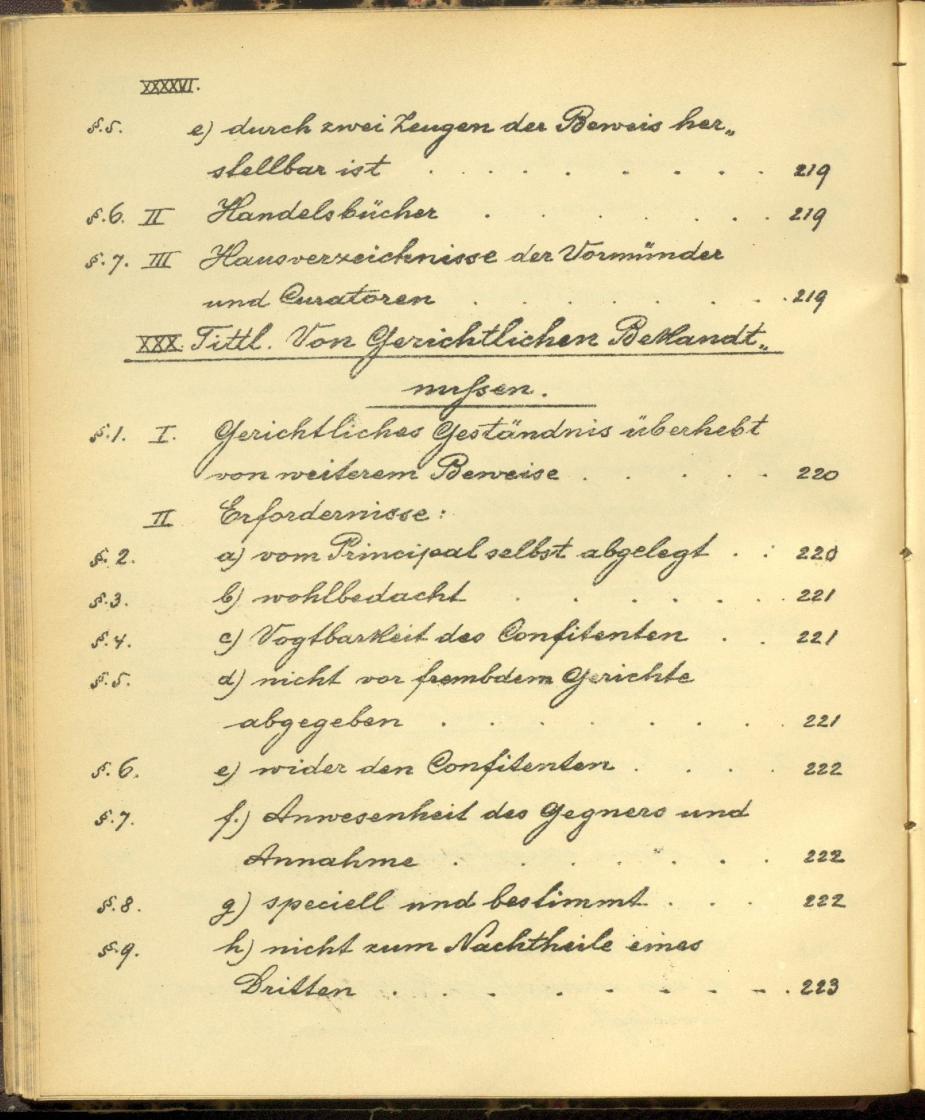 XXXXVI.
§.5. e) durch zwei Zeugen der Beweis her„
stellbar ist . . . . . . . . 219
§.6. II Handelsbücher . . . . . . . 219
§.7. III Hausverzeichnisse der Vormünder
und Curatoren . . . . . . . 219
XXX Tittl. Von Gerichtlichen Bekandt„
nußen.
§.1. I. Gerichtliches Geständnis überhebt
von weiterem Beweise . . . . . 220
II Erfordernisse:
§.2. a) vom Principal selbst abgelegt . . 220
§.3. b) wohlbedacht . . . . . . . 221
§.4. c) Vogtbarkeit des Confitenten . . 221
§.5. d) nicht vor frembdem Gerichte
abgegeben . . . . . . . . 221
§.6. e) wider den Confitenten . . . . 222
§.7. f.) Anwesenheit des Gegners und
Annahme . . . . . . . . 222
§.8. g) speciell und bestimmt . . . 222
§.9. h) nicht zum Nachtheile eines
Dritten . . . . . . . . . 223